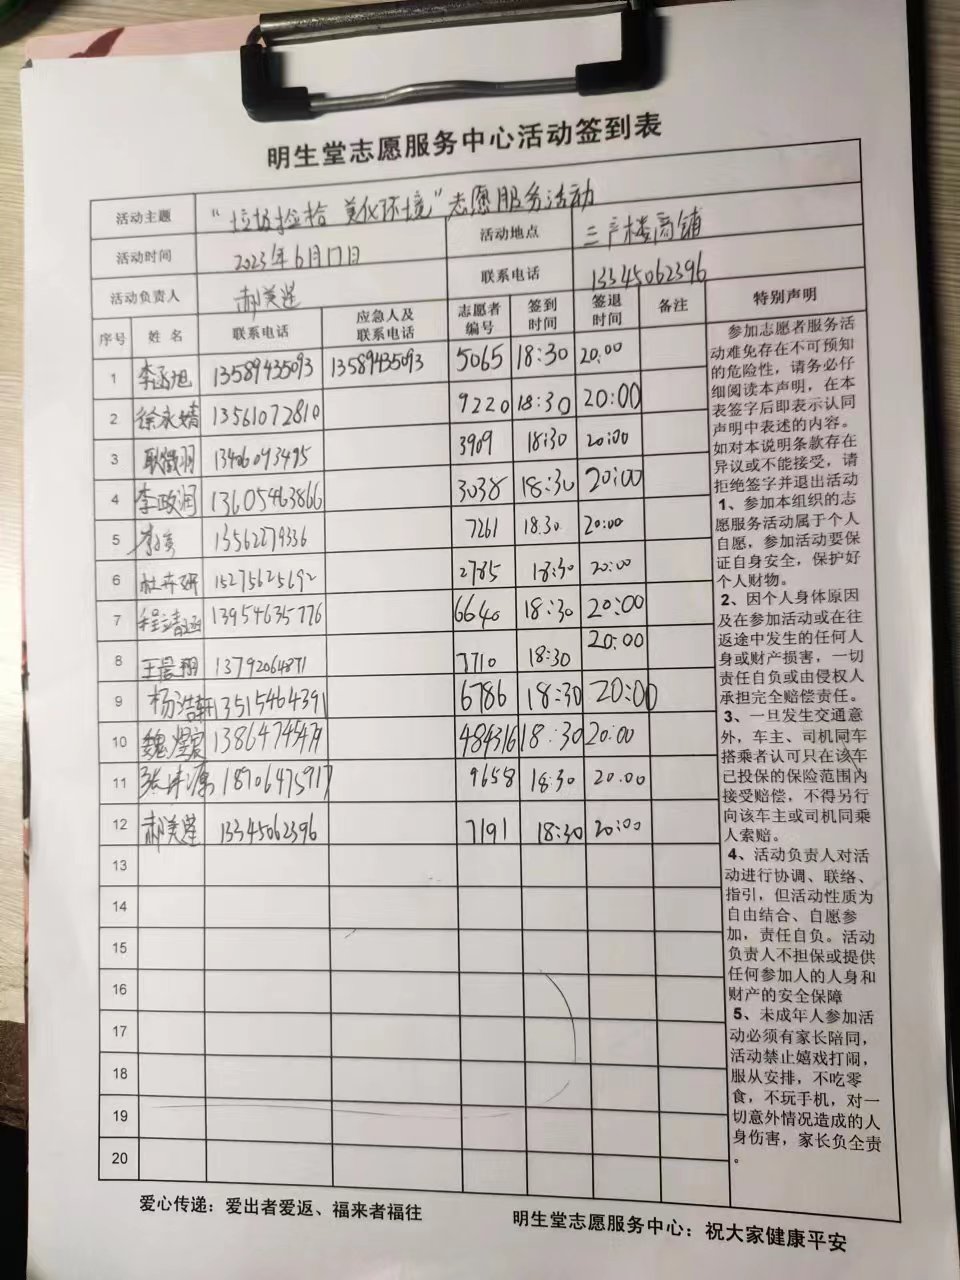 明生堂志愿服务中心活动签到表
活动主题 "垃圾捡拾 美化环境"志愿服务活动
活动时间 2023年6月17日 活动地点 三产楼商铺
活动负责人 郝美莲 联系电话 13345062396
序号 姓名 联系电话 应急人及联系电话 志愿者编号 签到时间 签退时间 备注 特别声明
1 13589435093 13589435093 5065 18:30 20:00
2 徐永婧 13561072810 9220 18:30 20:00
3 3909 18:30 20:00
4 李政润 13605463866 3038 18:30 20:00
5 13562279336 7261 18:30 20:00
6 15275625692 2785 18:30 20:00
7 13954635776 6640 18:30 20:00
8 王晨翔 13792064871 7710 18:30 20:00
9 杨浩轩 13515464391 6786 18:30 20:00
10 484316 18:30 20:00
11 18706475917 9658 18:30 20:00
12 郝美莲 13345062396 7191 18:30 20:00
13
14
15
16
17
18
19
20
参加志愿者服务活
动难免存在不可预知
的危险性，请务必仔
细阅读本声明，在本
表签字后即表示认同
声明中表述的内容。
如对本说明条款存在
异议或不能接受，请
拒绝签字并退出活动
1、参加本组织的志
愿服务活动属于个人
自愿，参加活动要保
证自身安全，保护好
个人财物。
2、因个人身体原因
及在参加活动或在往
返途中发生的任何人
身或财产损害，一切
责任自负或由侵权人
承担完全赔偿责任。
3、一旦发生交通意
外，车主、司机同车
搭乘者认可只在该车
已投保的保险范围内
接受赔偿，不得另行
向该车主或司机同乘
人索赔。
4、活动负责人对活
动进行协调、联络、
指引，但活动性质为
自由结合、自愿参
加，责任自负。活动
负责人不担保或提供
任何参加人的人身和
财产的安全保障
5、未成年人参加活
动必须有家长陪同，
活动禁止嬉戏打闹，
服从安排，不吃零
食，不玩手机，对一
切意外情况造成的人
身伤害，家长负全责
。
爱心传递：爱出者爱返、福来者福往
明生堂志愿服务中心：祝大家健康平安